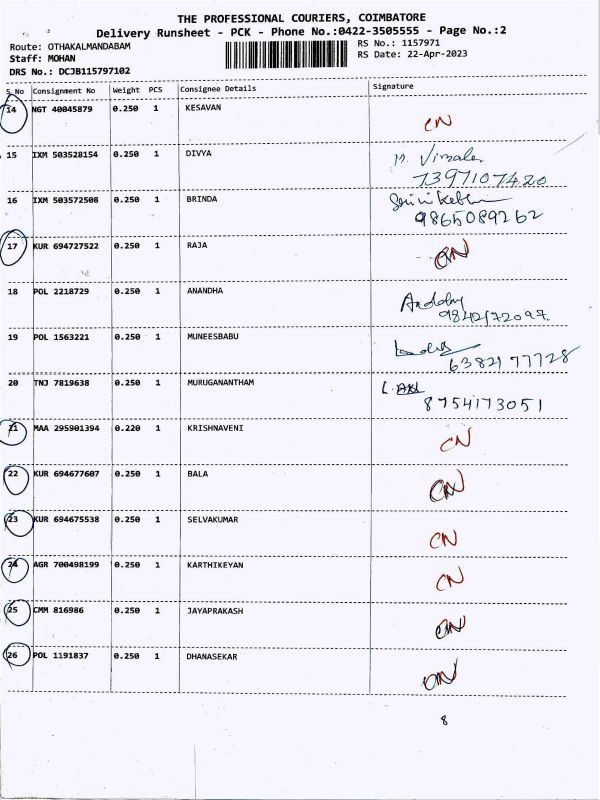 THE PROFESSIONAL COURIERS, COIMBATORE
Delivery Runsheet - PCK - Phone No.:0422-3505555 - Page No.:2
Route: OTHAKALMANDABAM RS No.: 1157971
Staff: MOHAN RS Date: 22-Apr-2023
DRS No.: DCJB115797102
S No Consignment No Weight PCS Consignee Details Signature
14 NGT 40045879 0.250 1 KESAVAN CN
15 IXM 503528154 0.250 1 DIVYA M. Vimala
7397107420
16 IXM 503572508 0.250 1 BRINDA
9865089262
17 KUR 694727522 0.250 1 RAJA CN
18 POL 2218729 0.250 1 ANANDHA
9842172097
19 POL 1563221 0.250 1 MUNEESBABU
6382177728
20 TNJ 7819638 0.250 1 MURUGANANTHAM
8754173051
21 MAA 295901394 0.220 1 KRISHNAVENI CN
22 KUR 694677607 0.250 1 BALA CN
23 KUR 694675538 0.250 1 SELVAKUMAR CN
24 AGR 700498199 0.250 1 KARTHIKEYAN CN
25 CMM 816986 0.250 1 JAYAPRAKASH CN
26 POL 1191837 0.250 1 DHANASEKAR CN
8